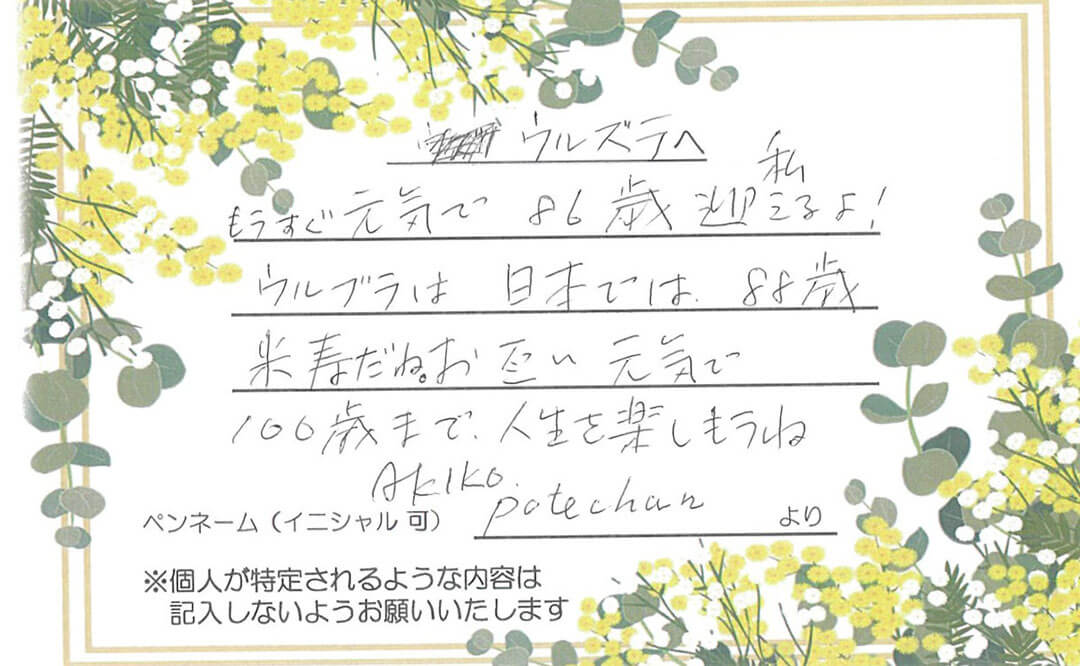 ウルズラへ
私
もうすぐ元気で 86歳 迎えるよ!
ウルブラは 日本では、88歳
米寿だね。お互い 元気で
100歳まで、人生を楽しもうね
Akiko.
ペンネーム（イニシャル 可） potechan より
※個人が特定されるような内容は
記入しないようお願いいたします